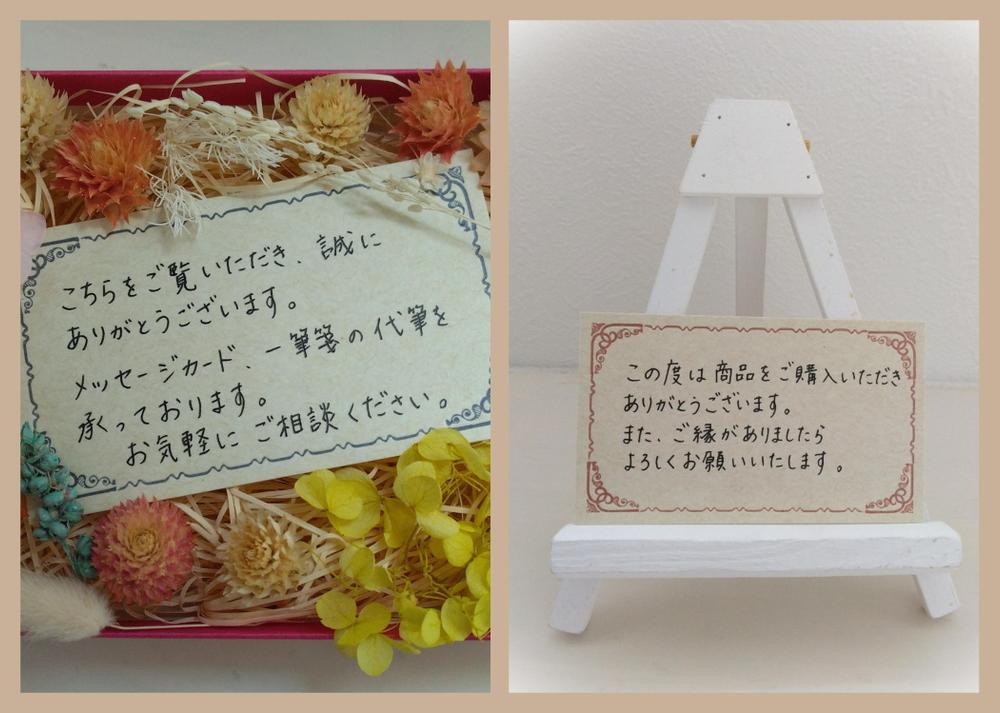 こちらをご覧いただき、誠に
ありがとうございます。
メッセージカード、一筆箋の代筆を
承っております。
お気軽にご相談ください。
この度は商品をご購入いただき
ありがとうございます。
また、ご縁がありましたら
よろしくお願いいたします。